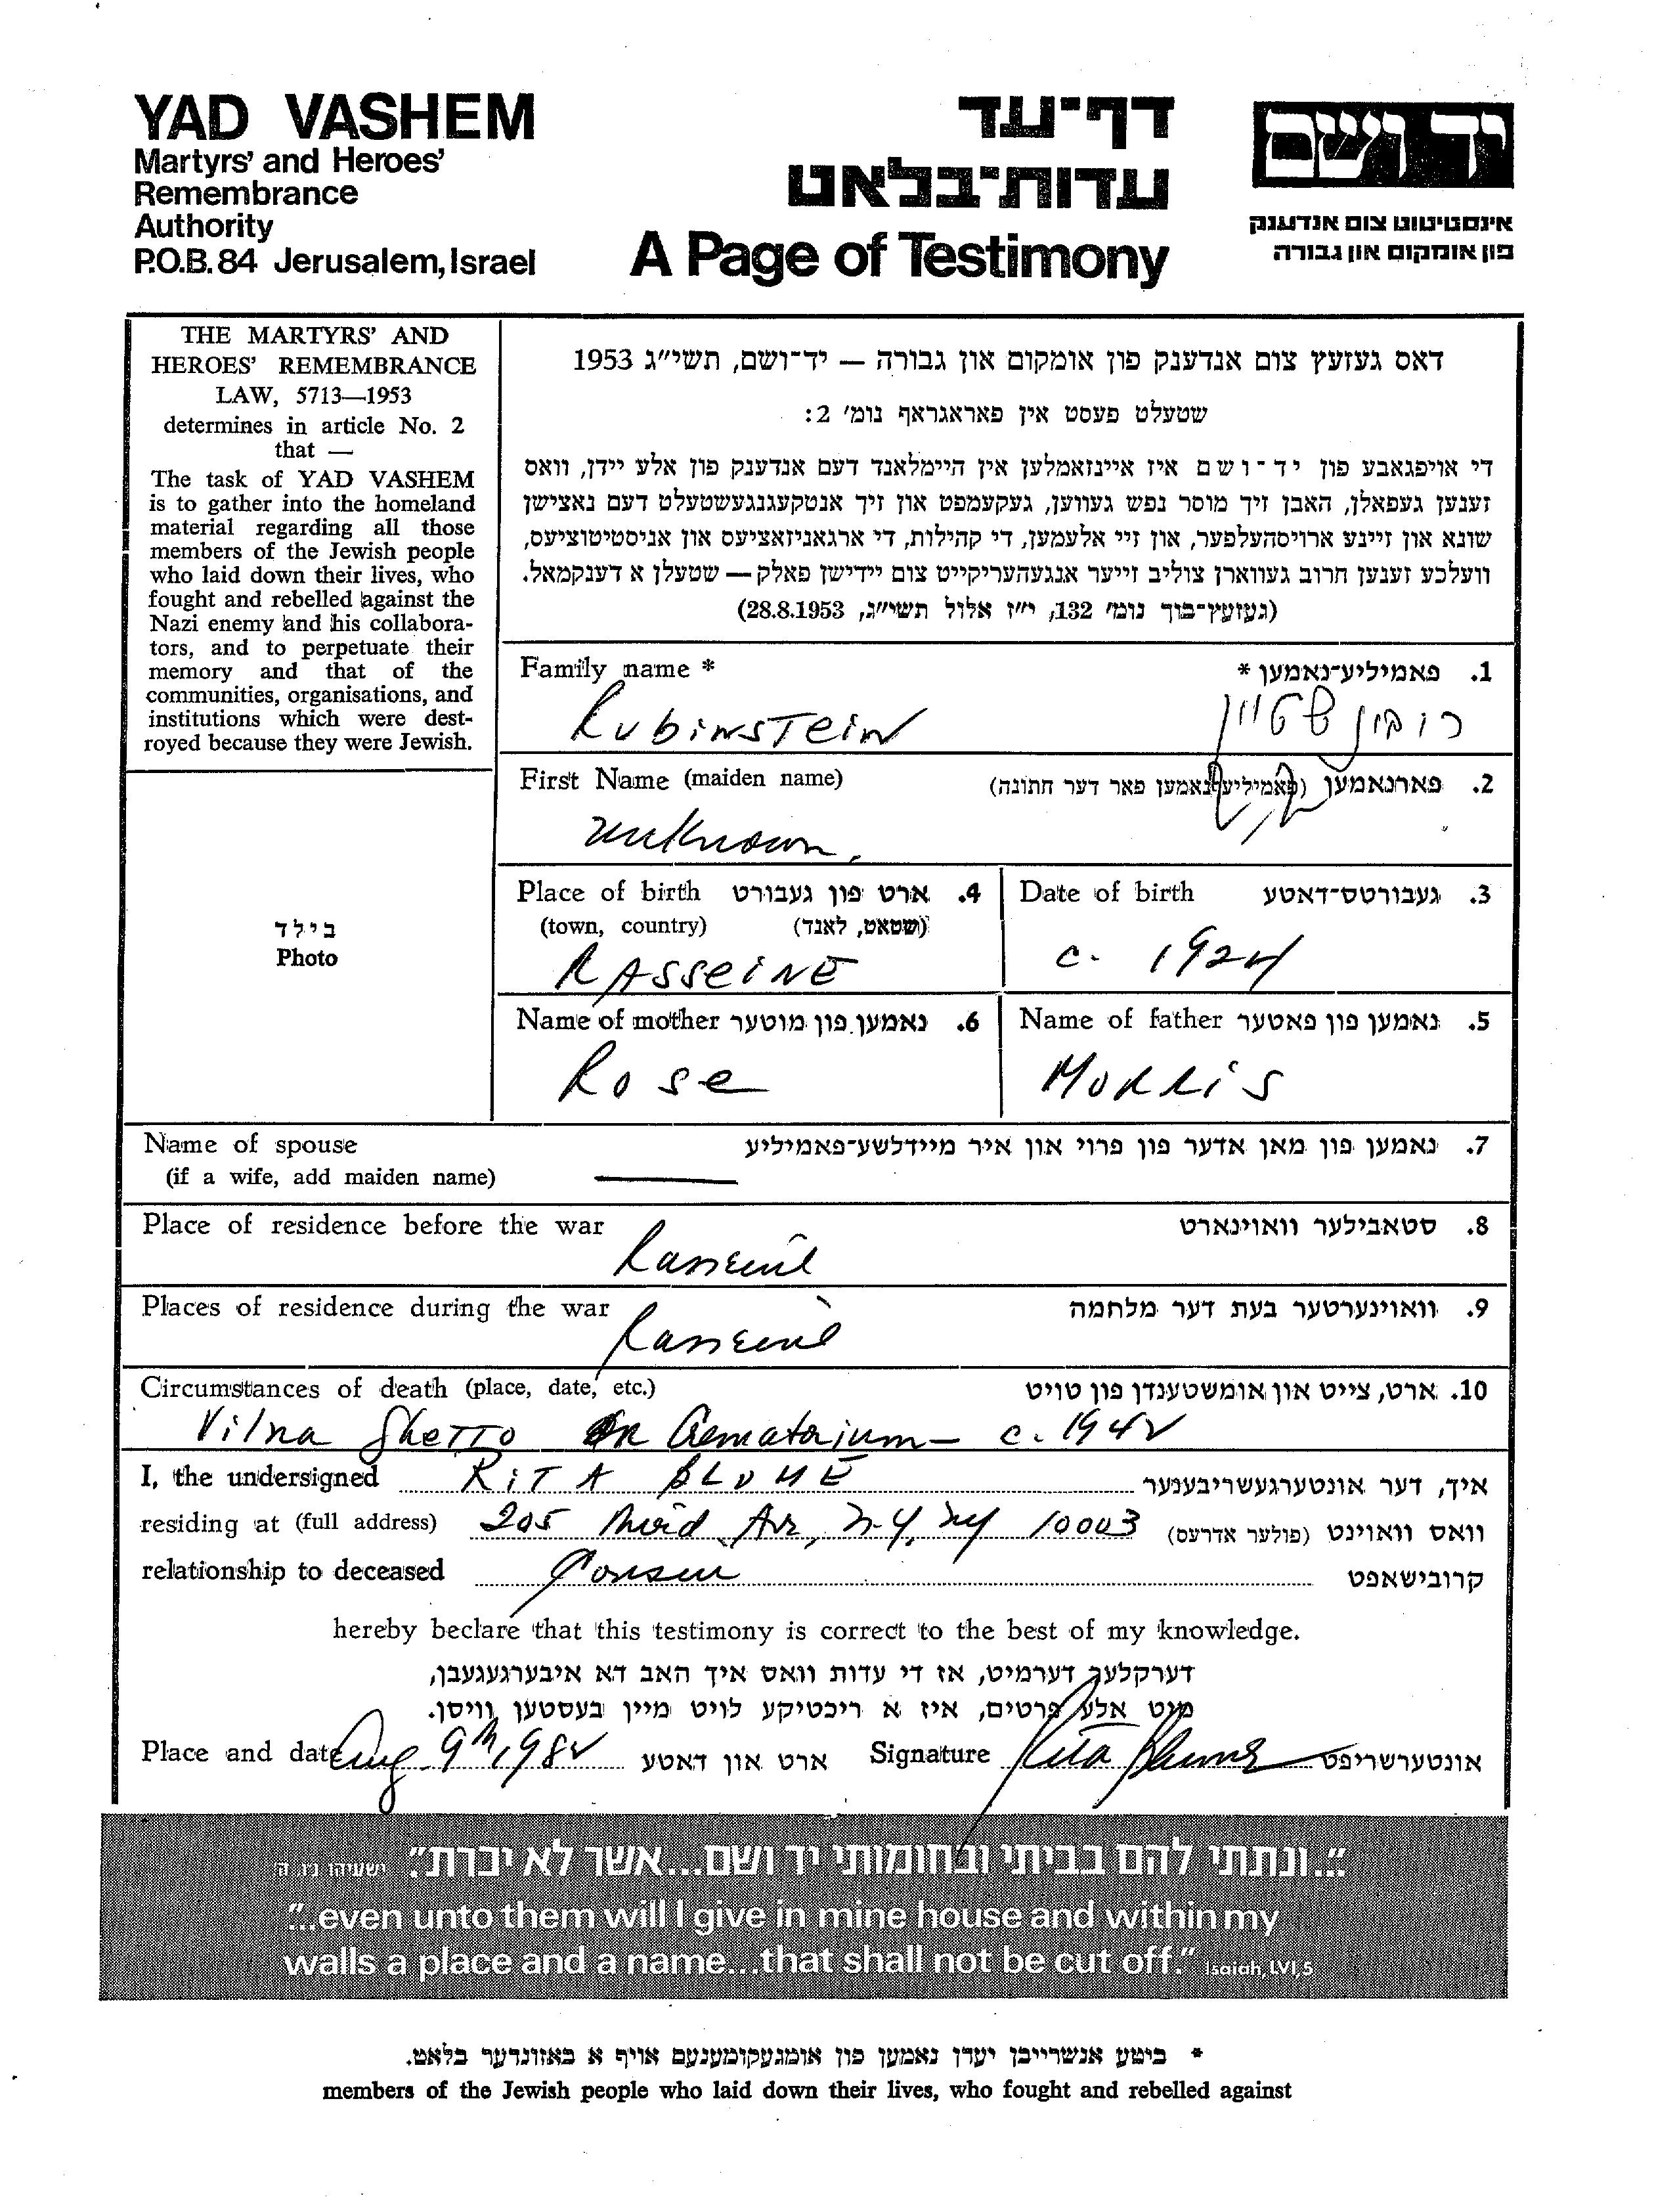 YAD VASHEM
Martyrs' and Heroes'
Remembrance
Authority
P.O.B. 84 Jerusalem, Israel
דף־עד
עדות־בלאט
A Page of Testimony
יד ושם
אינסטיטוט צום אנדענק
פון אומקום און גבורה
THE MARTYRS' AND
HEROES' REMEMBRANCE
LAW, 5713—1953
determines in article No. 2
that —
The task of YAD VASHEM
is to gather into the homeland
material regarding all those
members of the Jewish people
who laid down their lives, who
fought and rebelled against the
Nazi enemy and his collabora-
tors, and to perpetuate their
memory and that of the
communities, organisations, and
institutions which were dest-
royed because they were Jewish.
דאס געזעץ צום אנדענק פון אומקום און גבורה — יד־ושם, תשי״ג 1953
שטעלט פעסט אין פאראגראף נומ׳ 2:
די אויפגאבע פון יד־ושם איז איינזאמלען אין היימלאנד דעם אנדענק פון אלע יידן, וואס
זענען געפאלן, האבן זיך מוסר נפש געווען, געקעמפט און זיך אנטקעגנגעשטעלט דעם נאצישן
שונא און זיינע ארויסהעלפער, און זיי אלעמען, די קהילות, די ארגאניזאציעס און אניסטיטוציעס,
וועלכע זענען חרוב געווארן צוליב זייער אנגעהעריקייט צום יידישן פאלק — שטעלן א דענקמאל.
(געזעץ־בוך נומ׳ 132, י״ז אלול תשי״ג, 28.8.1953)
Family name * פאמיליע־נאמען * .1
Rubinstein רובין שטיין
First Name (maiden name) פארנאמען (פאמיליע־נאמען פאר דער חתונה) .2
unknown.
Place of birth ארט פון געבורט .4
(town, country) (שטאט, לאנד)
RASSEINE
Date of birth געבורטס־דאטע .3
c. 1924
Name of mother נאמען פון מוטער .6
Rose
Name of father נאמען פון פאטער .5
MORRIS
בילד
Photo
Name of spouse נאמען פון מאן אדער פון פרוי און איר מיידלשע־פאמיליע .7
(if a wife, add maiden name)
Place of residence before the war סטאבילער וואוינארט .8
Rasseine
Places of residence during the war וואוינערטער בעת דער מלחמה .9
Rasseine
Circumstances of death (place, date, etc.) ארט, צייט און אומשטענדן פון טויט .10
Vilna Ghetto OR Crematorium — c. 1942
I, the undersigned RITA BLUME איך, דער אונטערגעשריבענער
residing at (full address) 205 Third Av, N.Y. NY 10003 וואס וואוינט (פולער אדרעס)
relationship to deceased Cousin קרובישאפט
hereby declare that this testimony is correct to the best of my knowledge.
דערקלער דערמיט, אז די עדות וואס איך האב דא איבערגעגעבן,
מיט אלע פרטים, איז א ריכטיקע לויט מיין בעסטען וויסן.
Place and date Aug 9th 1982 ארט און דאטע Signature Rita Blume אונטערשריפט
"...ונתתי להם בביתי ובחומותי יד ושם...אשר לא יכרת". ישעיהו נ״ו, ה׳
"...even unto them will I give in mine house and within my
walls a place and a name...that shall not be cut off." Isaiah, LVI, 5
* ביטע אנשרייבן יעדן נאמען פון אומגעקומענעם אויף א באזונדער בלאט.
members of the Jewish people who laid down their lives, who fought and rebelled against